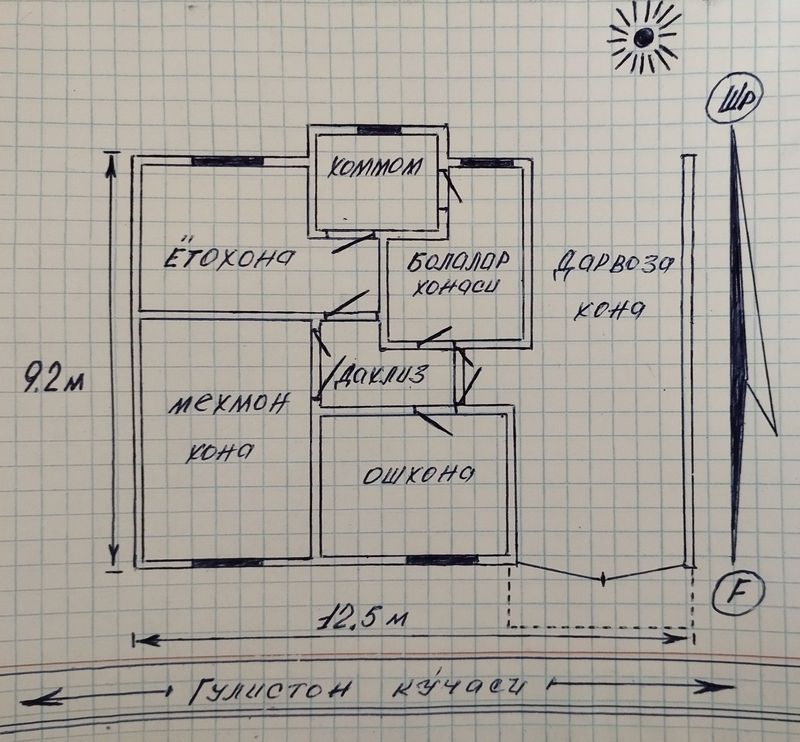 Шр
КОММОМ
ЁТОХОНА
БОЛАЛАР
ХОНАСИ
ДАРВОЗА
ХОНА
9.2 м
ДАХЛИЗ
МЕХМОН
ХОНА
ОШХОНА
F
12.5 м
Гулистон кўчаси